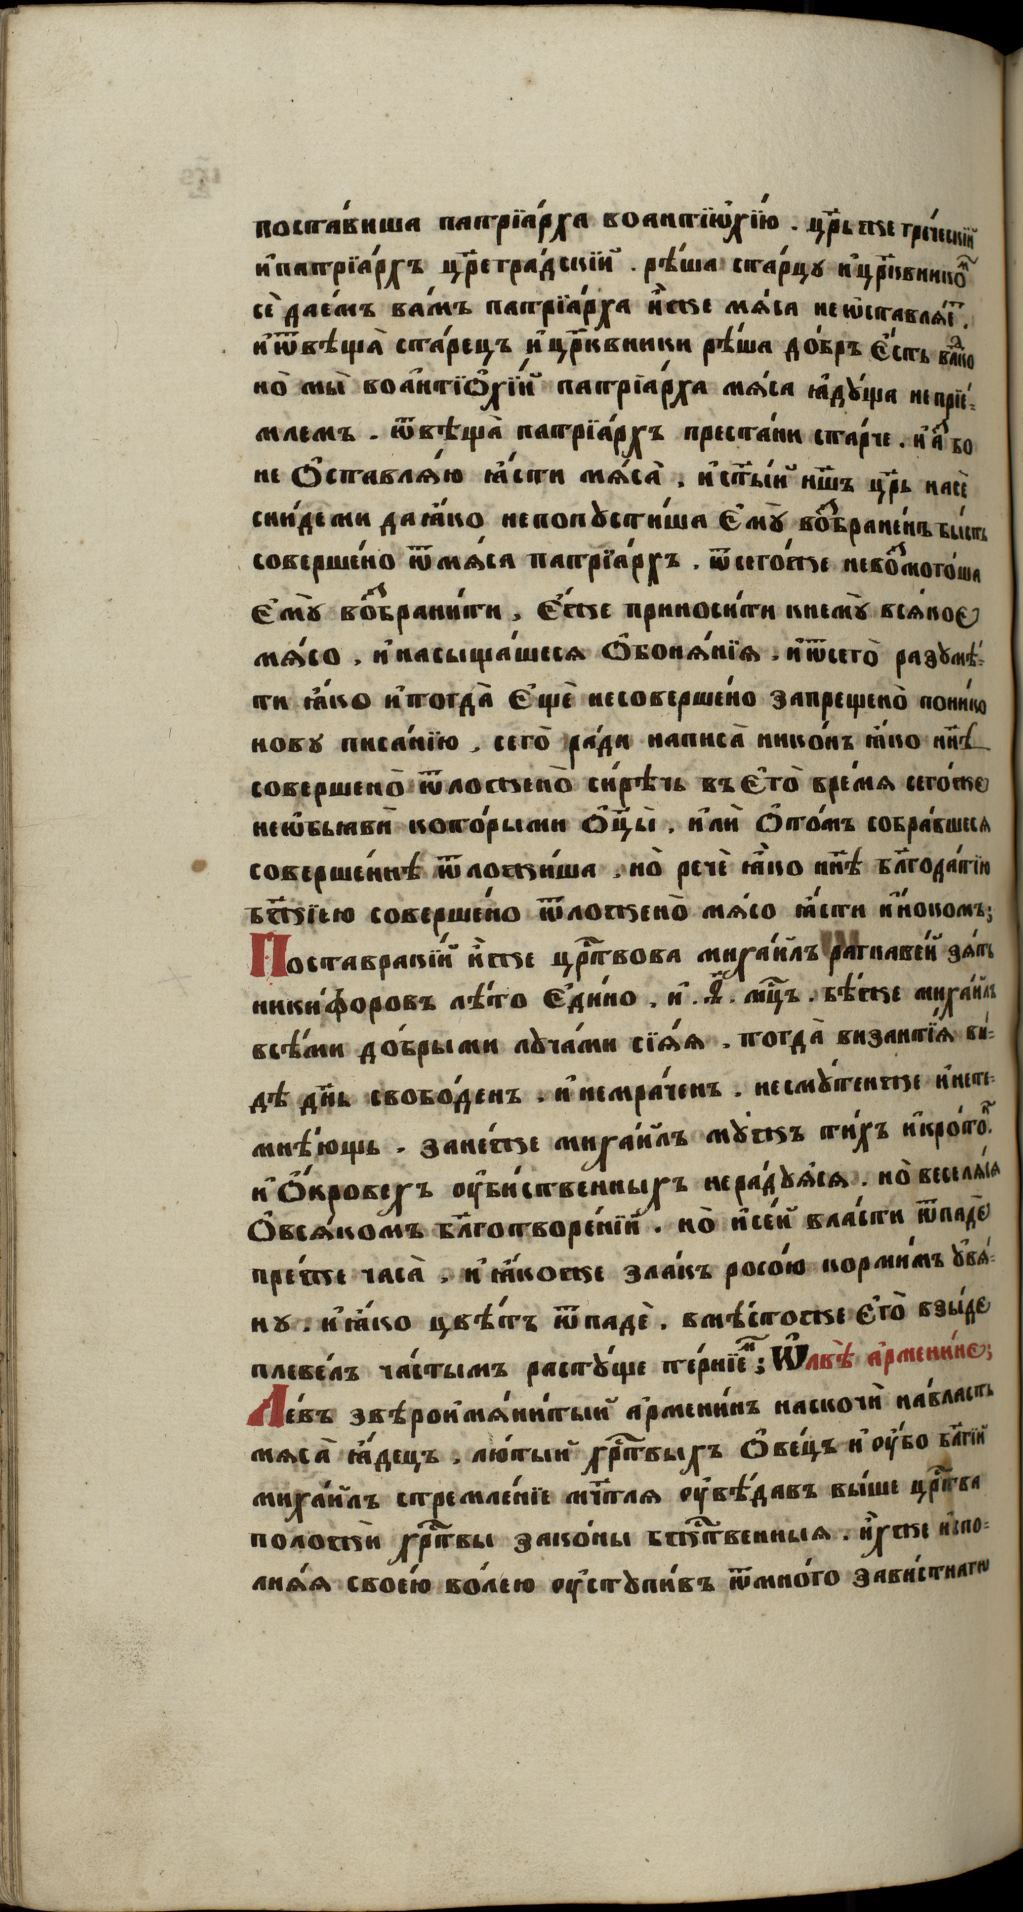 поста́виша патрїа́рха воантїѡ҆хі́ю . цр҃ь же гре́ческїй
и҆патрїа́рхъ цр҃егра́дскїй . рѣ́ша ста́рцу и҆цр҃ковникѡⷨ
сѐ дае́мъ ва́мъ патрїа́рха и҆́же мѧ́са неѡ҆ставлѧ́єⷮ .
и҆ѿвѣща̀ ста́рецъ и҆ цр҃ковники рѣ́ша до́брѣ є҆́сть влⷣко
но̀ мы̀ воа҆нтїѻ҆хі́й патрїа́рха мѧ́са ꙗ҆дꙋ́ща непрїе́-
млемъ . ѿвѣща̀ патрїа́рхъ преста́ни ста́рче . и҆ а҆́⁠з бо
не ѻ҆ставлѧ́ю ꙗ҆́сти мѧ́са̀ , и҆ст҃ы́й нш҃ъ цр҃ь насѐ
сни́деми даꙗ҆́ко непопꙋсти́ша є҆мꙋ̀ воꙁ̾бране́нъ бы́сть
соверше́но ѿмѧ́са патрїа́рхъ . ѿсего́же невоꙁ̾мого́ша
є҆мꙋ̀ воꙁ̾брани́ти , є҆́же приноси́ти кнемꙋ̀ всѧ́кое
мѧ́со , и҆насыща́шесѧ ѻ҆бонѧ́нїѧ , и҆ѿсего̀ разꙋмѣ́-
ти ꙗ҆́ко и҆тогда̀ є҆щѐ несоверше́но запрещено̀ понико
новꙋ писа́нїю , сего̀ ра́ди написа̀ нико́нъ ꙗ҆́ко нн҃ѣ
совершено̀ ѿложено̀ си́рѣчь въ є҆то̀ вре́мѧ сего́же
неѡ҆бьѧвѝ кото́рыми ѻ҆ц҃ы̀ , и҆лѝ ѻ҆то́мъ собра́вшесѧ
соверше́ннѣ ѿложи́ша , но̀ речѐ ꙗ҆́ко нн҃ѣ бл҃года́тїю
бж҃їею соверше́но ѿложено̀ мѧ́со ꙗ҆́сти и҆́нокомъ ;
Поставра́кїй и҆́же цр҃твова михаи́лъ рагкавей зѧ́ть
ники́форовъ лѣ́то є҆ди́но , и҆ . ѳ҃ . мц҃ъ . бѣ́же михаи́лъ
всѣ́ми до́брыми лꙋча́ми сїѧ́ѧ , тогда̀ византі́ѧ ви́-
дѣ дн҃ь свобо́денъ , и҆немра́ченъ , несмꙋ́тенже и҆несте-
мнѣ́ющь . зане́же михаи́лъ мꙋ́жъ ти́хъ и҆кро́токⸯ .
и҆ ѻ҆́кровехъ ᲂу҆би́ственныхъ нера́дꙋѧсѧ , но̀ веселѧ́сѧ
ѻ҆всѧ́комъ бл҃готворе́нїй . но̀ и҆се́й вла́сти ѿпадѐ
пре́же часа̀ , и҆ ꙗ҆́коже зла́къ росо́ю корми́мъ ᲂу҆вѧ́-
нꙋ . и҆ ꙗ҆́ко цвѣ́тъ ѿпадѐ . вмѣ́стоже є҆го̀ взы́де
плеве́лъ ча́стымъ растꙋ́ще те́рнїеⷨ ; Ѡ҆лвѣ̀ а҆рмени́не ;
Ле́въ звѣроимѧни́тый а҆рмени́нъ наскочѝ навла́сть
мѧса̀ ꙗ҆́децъ , лю́тый хрⷭ҇твыхъ ѻ҆ве́цъ и҆ ᲂу҆́бо бл҃гі́й
михаи́лъ стремле́нїе мч҃тлѧ ᲂу҆вѣ́давъ вы́ше црⷭ҇тва
положѝ хрⷭ҇твы зако́ны бжⷭ҇твенныѧ . и҆́хже и҆спо-
лнѧ́ѧ свое́ю во́лею ᲂу҆стꙋпи́въ ѿмно́го зави́стнагѡ